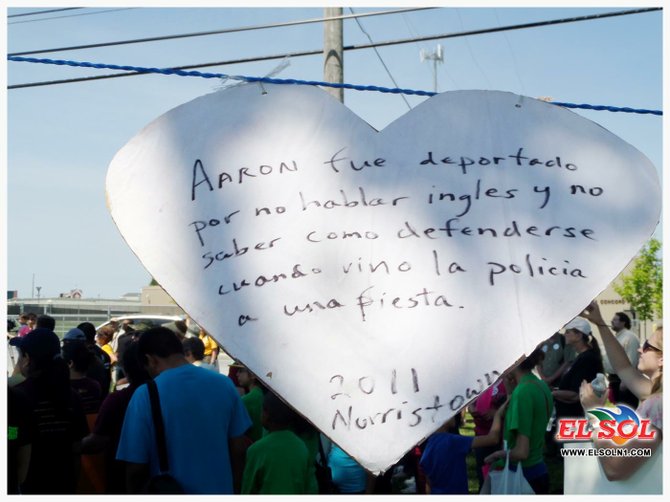 AARON fue deportado
por no hablar ingles y no
saber como defenderse
cuando vino la policia
a una fiesta.
2011
Norristown
EL SOL
WWW.ELSOLN1.COM